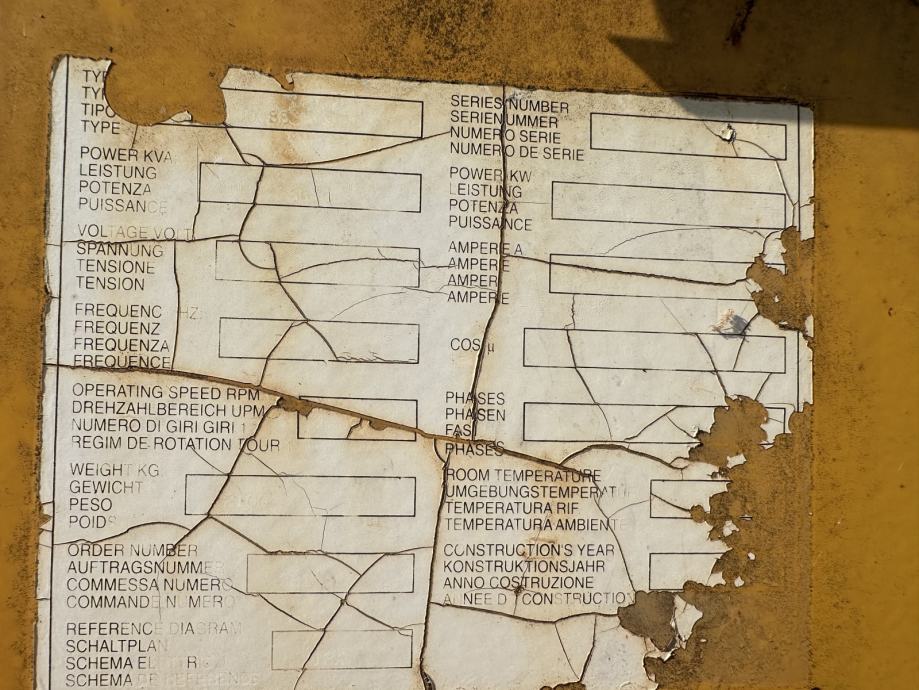 TYP
TY
TIPO
TYPE
POWER KVA
LEISTUNG
POTENZA
PUISSANCE
VOLTAGE VOLT
SPANNUNG
TENSIONE
TENSION
FREQUENC HZ
FREQUENZ
FREQUENZA
FREQUENCE
OPERATING SPEED RPM
DREHZAHLBEREICH UPM
NUMERO DI GIRI GIRI 1
REGIM DE ROTATION TOUR
WEIGHT KG
GEWICHT
PESO
POIDS
ORDER NUMBER
AUFTRAGSNUMMER
COMMESSA NUMERO
COMMANDE NUMERO
REFERENCE DIAGRAM
SCHALTPLAN
SCHEMA EL TTRI
SCHEMA DE REFERENCE
SERIES NUMBER
SERIENUMMER
NUMERO SERIE
NUMERO DE SERIE
POWER KW
LEISTUNG
POTENZA
PUISSANCE
AMPERE A
AMPERE
AMPER
AMPERE
COS µ
PHASES
PHASEN
FASI
PHASES
ROOM TEMPERATURE
UMGEBUNGSTEMPERATU
TEMPERATURA RIF.
TEMPERATURA AMBIENT
CONSTRUCTION'S YEAR
KONSTRUKTIONSJAHR
ANNO COSTRUZIONE
A NEE D CONSTRUCTIO